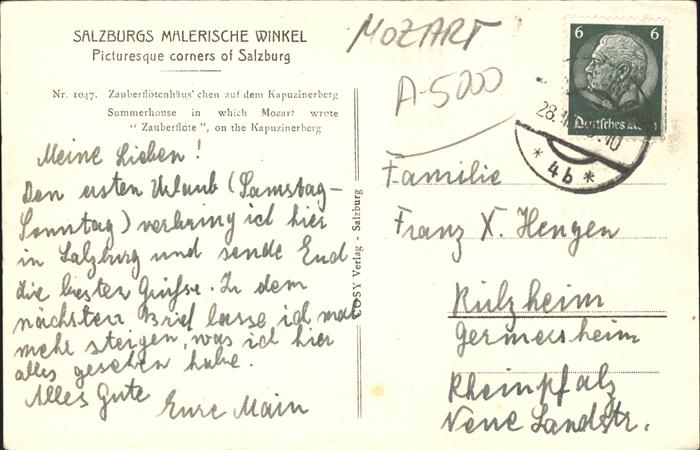 SALZBURGS MALERISCHE WINKEL
Picturesque corners of Salzburg
Nr. 1047. Zauberflötenhäus'chen auf dem Kapuzinerberg
Summerhouse in which Mozart wrote
"Zauberflöte", on the Kapuzinerberg
MOZART
A-5000
6 6
Deutsches Reich
28.
10
* 4b *
Meine Lieben!
Den ersten Urlaub (Samstag-
Sonntag) verbring ich hier
in Salzburg und sende Euch
die besten Grüsse. In dem
nächsten Brief lasse ich mal
mehr steigen, was ich hier
alles gesehen habe.
Alles Gute
Eure
COSY Verlag - Salzburg
Familie
Franz X. Hengen
Rülzheim
Germersheim
Rheinpfalz
Neue Landstr.